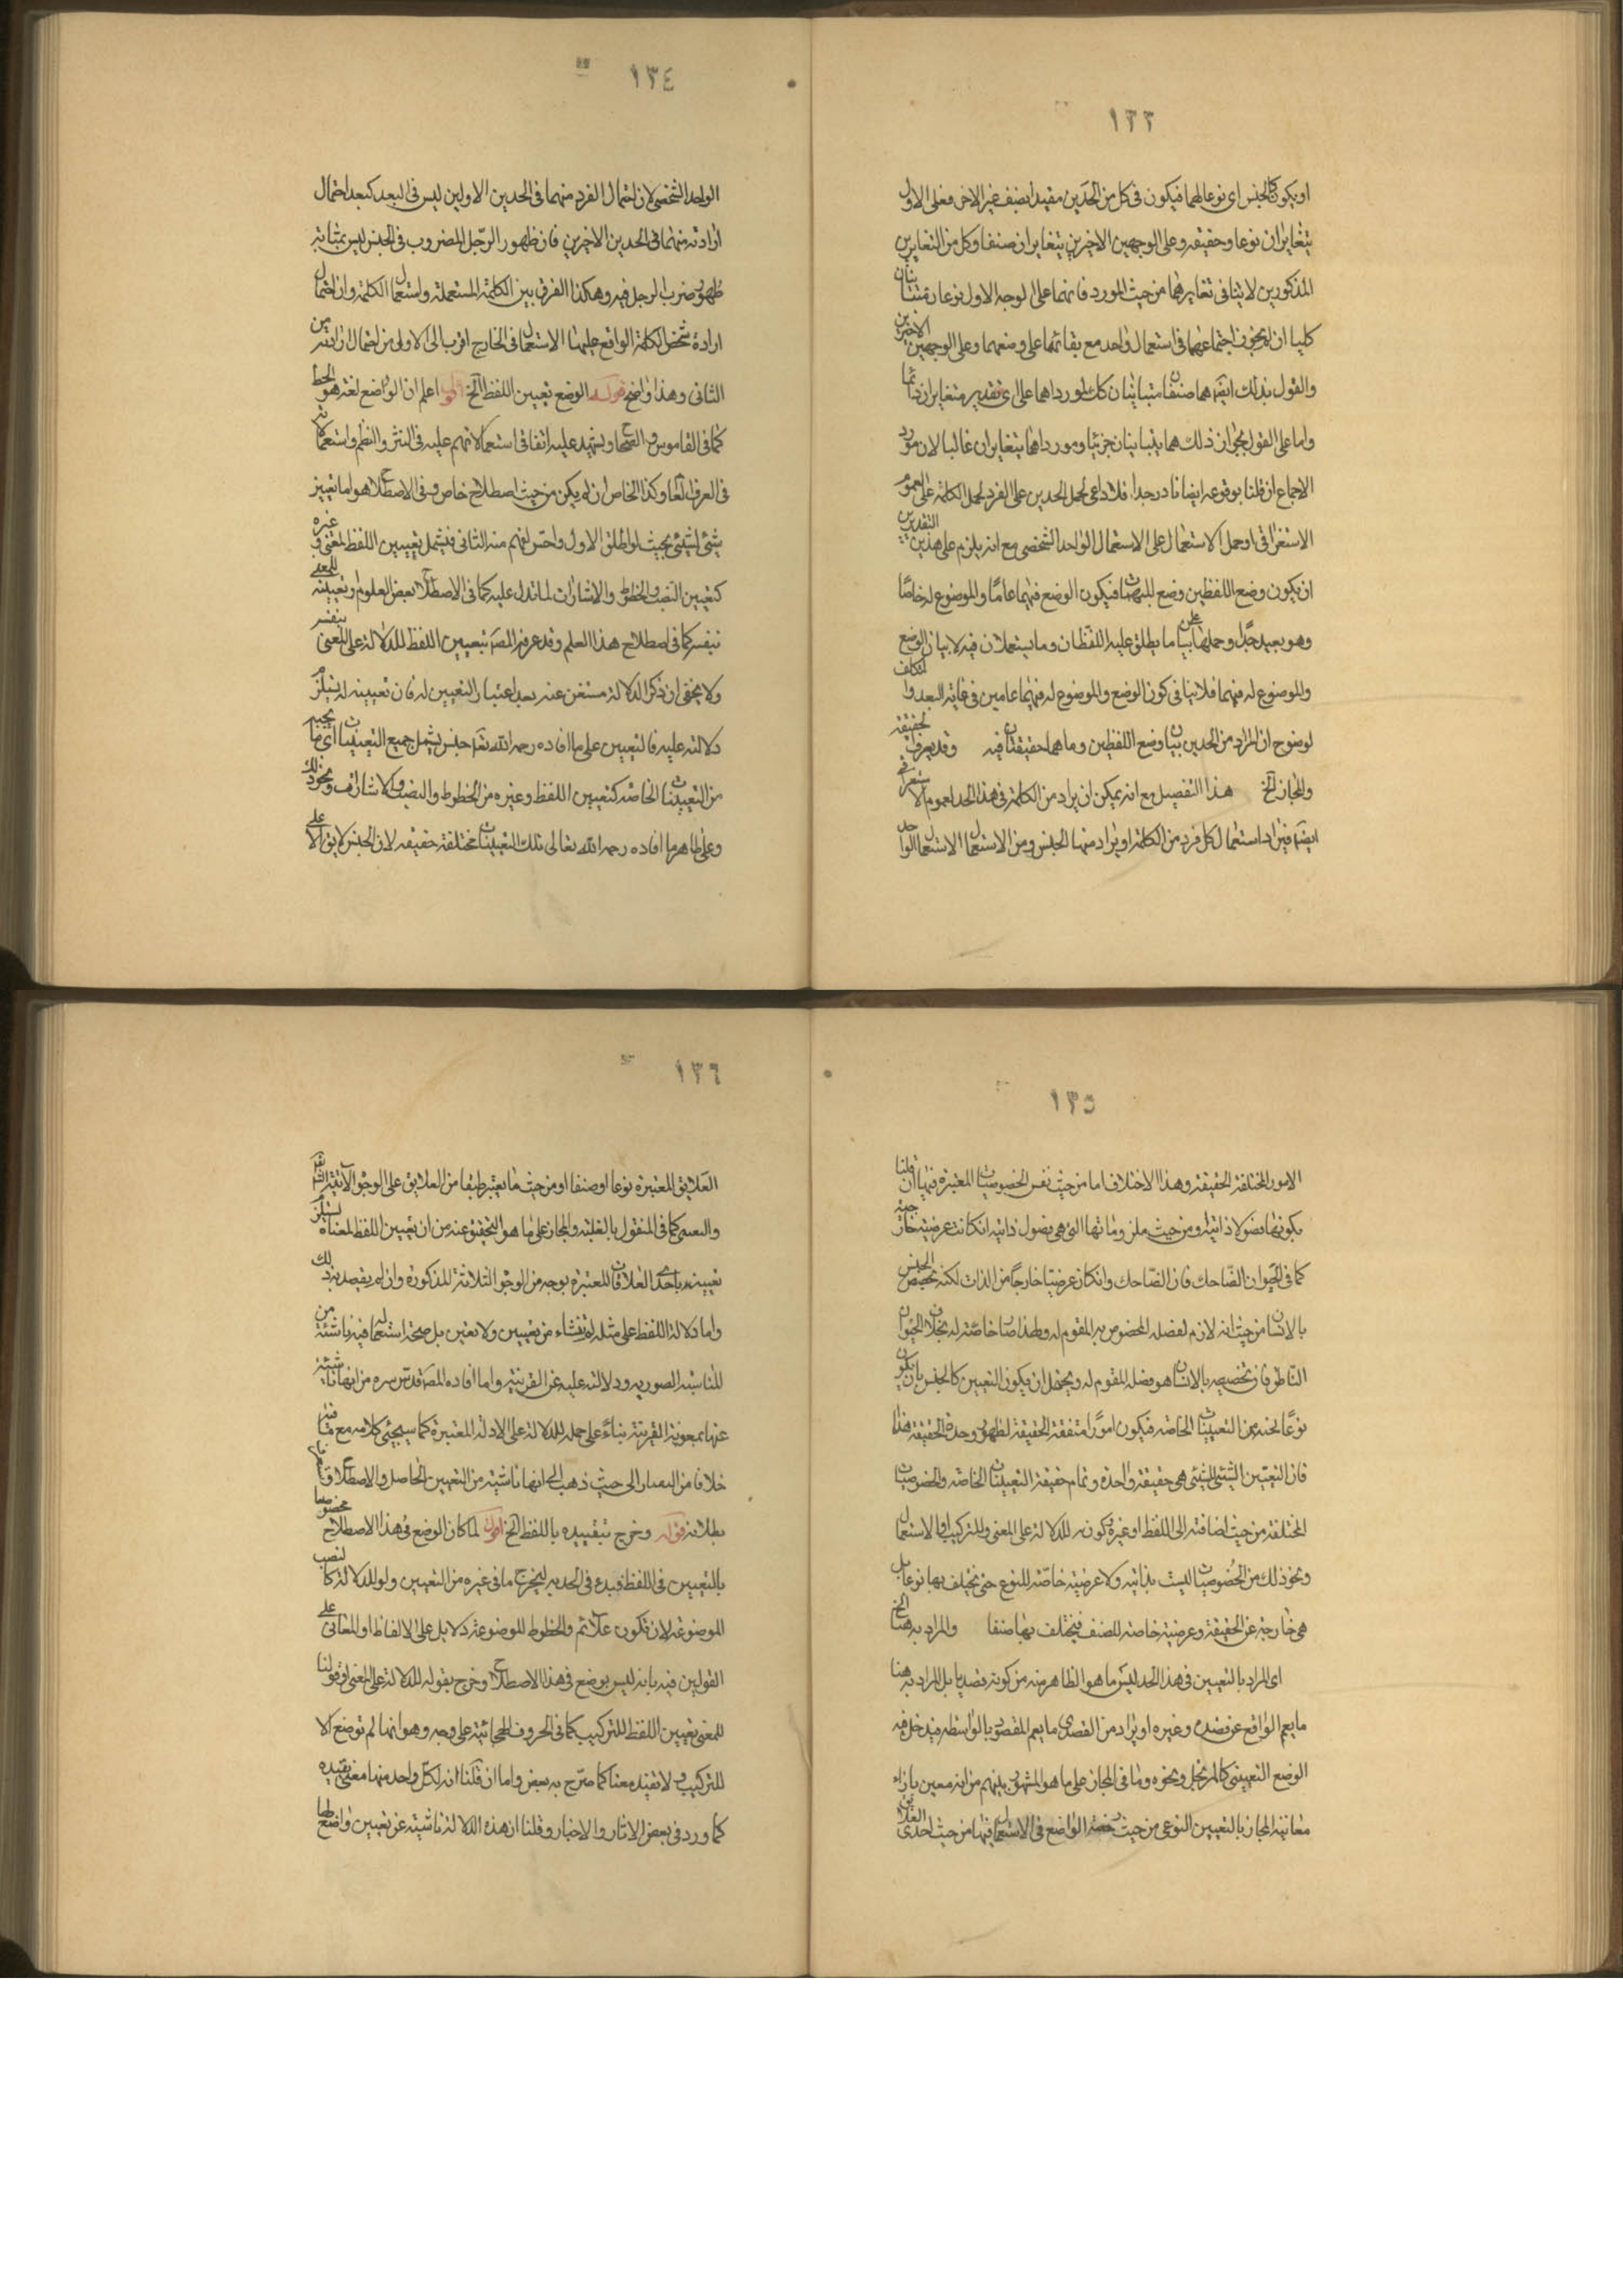 ١٣٣
او يكون كالجنس اى نوعا لهما فيكون فى كل من الحدين مقيدا بصنف غير الاخر فعلى الاول
يتغايران نوعا وحقيقة وعلى الوجهين الاخيرين يتغايران صنفا وكل من التغايرين
المذكورين لا ينافى تغايرهما من حيث المورد فانهما على الوجه الاول نوعان متباينان
كليا ان لم يجوز اجتماعهما فى استعمال واحد مع بقائهما على وضعهما وعلى الوجهين الاخيرين
والقول بذلك ايضا هما صنفان متباينان كك لمورداهما على اى تقدير متغايران دائما
واما على القول بجواز ذلك هما يتباينان جزئيا ومورداهما يتغايران غالبا لان مورد
الاجماع ان قلنا بوقوعه ايضا نادر جدا فلا داعى لحمل الحدين على الفرد لحمل الكلمة على العموم
الاستغراقى او حمل الاستعمال على الاستعمال الواحد الشخصى مع انه يلزم على هذين التقديرين
ان يكون وضع اللفظين وضع للمبهمات فيكون الوضع فيهما عاما والموضوع له خاصا
وهو بعيد جدا وحملهما على بيان ما يطلق عليه اللفظان وما يستعملان فيه لا بيان الوضع
والموضوع له فيهما فلا ينافى كون الوضع والموضوع له فيهما عامين فى غاية البعد والتكلف
لوضوح ان المراد من الحدين بيان وضع اللفظين وما هما حقيقتان فيه وقد يعرف الحقيقة
والمجاز الخ هذا التفصيل مع انه يمكن ان يراد من الكلمة فى هذا الحد العموم الاستغراقى
ايضا فيراد استعمال كل فرد من الكلمة او يراد منها الجنس ومن الاستعمال الاستعمال الواحد
١٣٤
الواحد الشخصى لان احتمال الفرد منهما فى الحدين الاولين ليس فى البعد كبعد احتمال
ارادته منهما فى الحدين الاخيرين فان ظهور الرجل المضروب فى الجنس ليس بمثابة
ظهور ضرب الرجل فيه وهكذا الفرق بين الكلمة المستعملة واستعمال الكلمة وان احتمال
ارادة شخص الكلمة الواقع عليها الاستعمال فى الخارج اقرب الى الاولى من احتمال ارادته من
الثانى وهذا واضح قوله الوضع تعيين اللفظ الخ اقول اعلم ان الوضع لغة هو الحط
كما فى القاموس والصحاح ويشهد عليه اتفاق استعمالاتهم عليه فى النثر والنظم واستعمالاته
فى العرف العام وكذا الخاص ان لم يكن من حيث اصطلاح خاص وفى الاصطلاح هو اما تعيين
شىء لشىء بحيث لو اطلق الاول واحس لفهم منه الثانى فيشمل تعيين اللفظ لمعنى وغيره
كتعيين النصب والخطوط والاشارات لما تدل عليه كما فى الاصطلاح بعض العلوم او تعيينه للمعنى
بنفسه كما فى اصطلاح هذا العلم وقد عرفه المصـ بتعيين اللفظ للدلالة على المعنى بنفسه
ولا يخفى ان ذكر الدلالة مستغن عنه بعد اعتبار التعيين له فان تعيينه له يستلزم
دلالته عليه فالتعيين على ما افاده رحمه الله تعـ جنس يشمل جميع التعيينات اى ما يحببه
من التعيينات الخاصة كتعيين اللفظ وغيره من الخطوط والنصب والاشارات ونحو ذلك
وعلى ظاهر ما افاده رحمه الله تعالى تلك التعيينات مختلفة حقيقة لان الجنس لا يق الا على
١٣٥
الامور المختلفة الحقيقة وهذا الاختلاف اما من حيث نفس الخصوصيات المعتبرة فيها ان قلنا
بكونها فصولا ذاتية ومن حيث ملزوماتها التى هى فصول ذاتية ان كانت عرضية خارجية
كما فى الحيوان الضاحك فان الضاحك وان كان عرضيا خارجا من الذات لكنه تخصيص الجنس
بالانسان من حيث انه لازم لفصله المخصوص به المقوم له ولهذا صار خاصة له بخلاف الحيوان
الناطق فان تخصيصه بالانسان هو فصله المقوم له ويحتمل ان يكون التعيين كالجنس بان يكون
نوعا تحته من التعيينات الخاصة فيكون امورا متفقة الحقيقة لظهور وحدة الحقيقة فيها
فان التعيين الشىء للشىء هى حقيقة واحدة وتمام حقيقة التعيينات الخاصة والخصوصيات
المختلفة من حيث اضافته الى اللفظ او غيره وكونه للدلالة على المعنى وللتركيب او الاستعمال
ونحو ذلك من الخصوصيات ليست بذاتية ولا عرضية خاصة للنوع حتى تختلف بها نوعا بل
هى خارجة عن الحقيقة وعرضية خاصة للصنف فيختلف بها صنفا والمراد به هنا الخ
اى المراد بالتعيين فى هذا الحد ليس ما هو الظاهر منه من كونه قصديا بل المراد به هنا
ما يعم الواقع عن قصد وغيره او يراد من القصدى ما يعم المقصود بالواسطة فيدخل فيه
الوضع التعينى كالمرتجل ونحوه وما فى المجاز على ما هو المشهور بينهم من انه معين بازاء
معانيه المجاز بالتعيين النوعى من حيث رخصة الواضع فى الاستعمال فيها من حيث احدى العلائق
١٣٦
العلايق المعتبرة نوعا او صنفا او من حيث ما يعتبر طبقا من العلايق على الوجوه الآتية انشـ تعـ
والتعينى كما فى المنقول بالغلبة والمجاز على ما هو التحقيق عنه من ان تعيين اللفظ لمعناه يستلزم
تعيينه باحدى العلاقات المعتبرة بوجه من الوجوه الثلاثة المذكورة وان لم يقصد بذلك
واما دلالة اللفظ على مثله لم تنشاء من تعيين ولا تعين بل صحة استعماله فيه ناشئة من
المناسبة الصورية ودلالته عليه عن القرينة واما ما افاده المصـ قدس سره من انها ناشئة
عنها بمعونة القرينة بناء على حمله للدلالة على الادلة المعتبرة كما سيجئى كلامه مع ما فيه
خلافا من حيث ذهب الى انها ناشئة من التعيين الحاصل والاصطلاح
بطلانه قوله وخرج بتقييده باللفظ الخ اقول لما كان الوضع فى هذا الاصطلاح مخصوصا
بالتعيين فى اللفظ قيده فى الحد به ليخرج ما فى غيره من التعيين ولو للدلالة كالنصب
الموضوعة لان تكون علائم والخطوط الموضوعة دلايل على الالفاظ او المعانى على
القولين فيه بانه ليس بوضع فى هذا الاصطلاح وخرج بقوله للدلالة على المعنى او قولنا
للمعنى تعيين اللفظ للتركيب كما فى الحروف الهجائية على وجه وهو انها لم توضع الا
للتركيب ولا تفيد معنا كما صرح به بعض واما ان قلنا ان لكل واحد منها معنى تفيده
كما ورد فى بعض الاثار والاخبار وقلنا ان هذه الدلالة ناشية عن تعيين واضعها